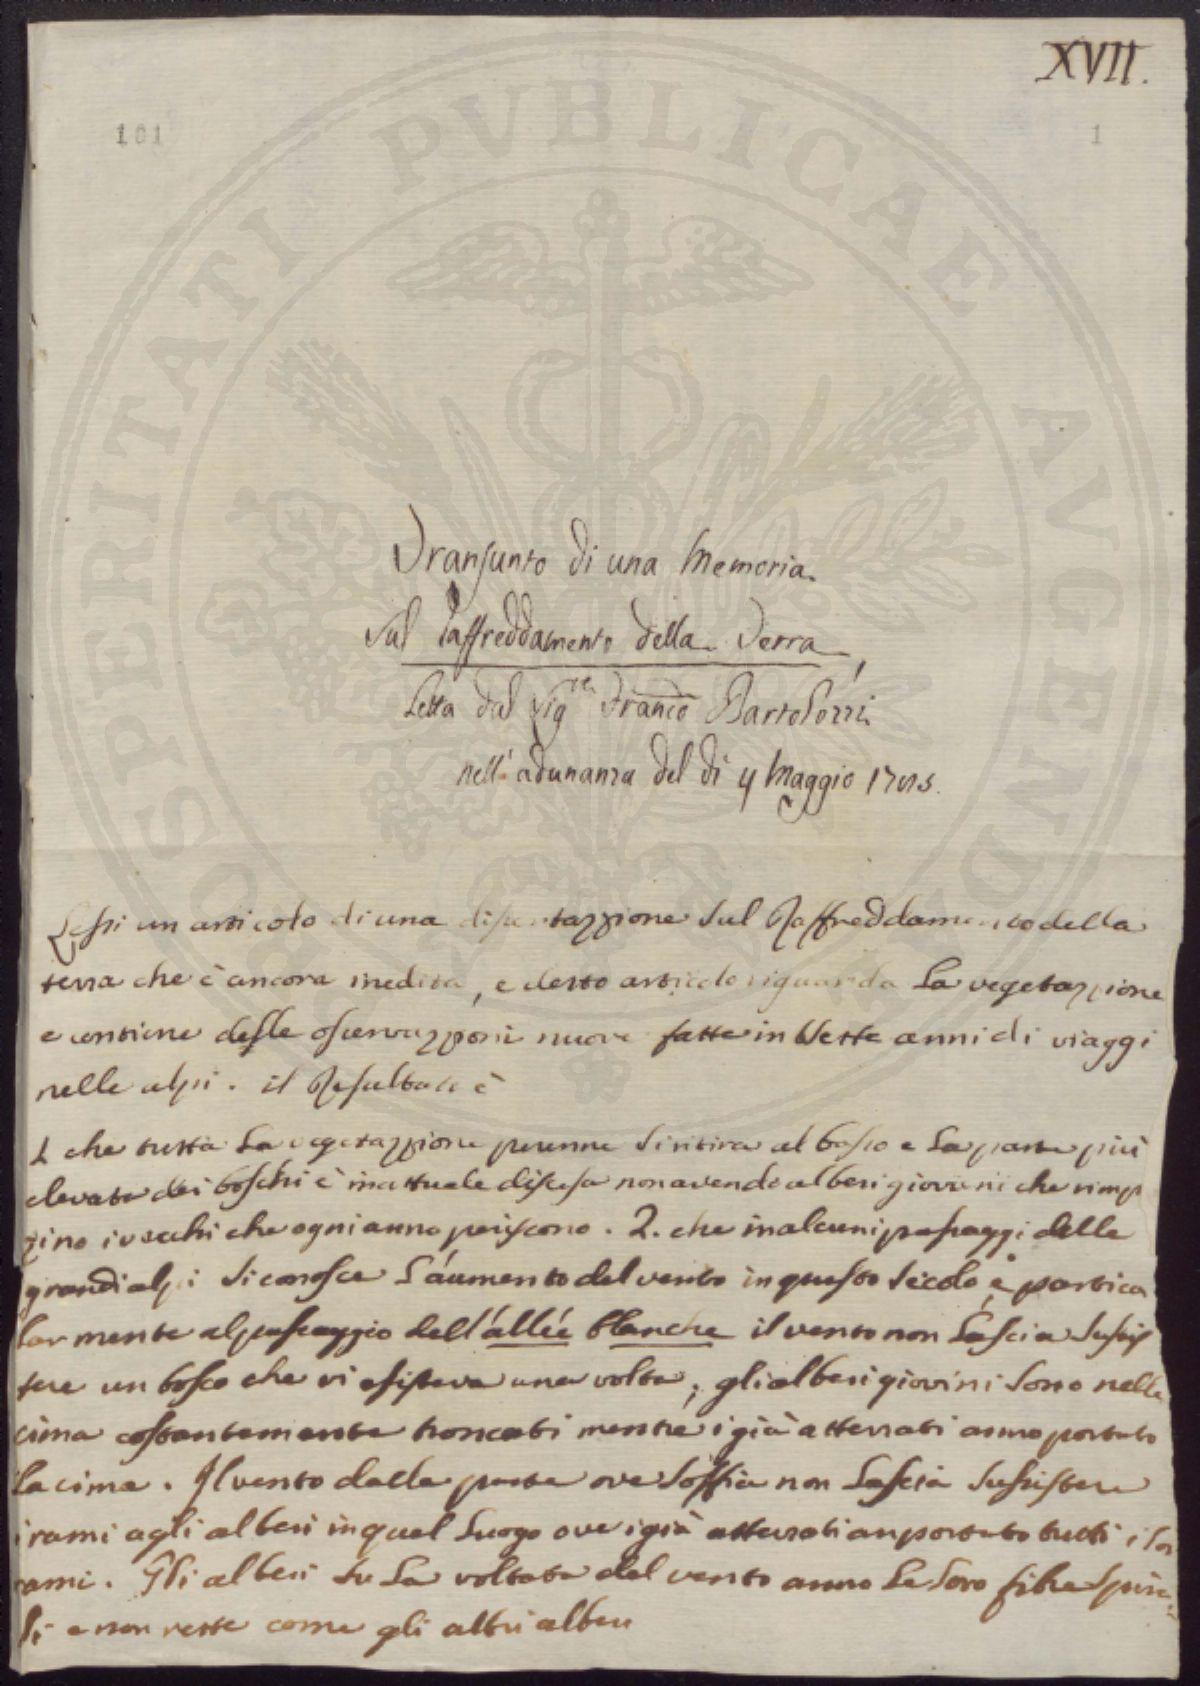 XVII.
101
1
PROSPERITATI PVBLICAE AVGENDAE
Transunto di una Memoria
sul Raffreddamento della Terra,
Letta dal Sig.re Franco Bartolozzi
nell'adunanza del dì 4 Maggio
Lessi un articolo di una dissertazzione sul Raffreddamento della
terra che è ancora inedita, e detto articolo riguarda la vegetazzione
e contiene delle osservazzioni nuove fatte in sette anni di viaggi
nelle alpi. il Resultato è
1 che tutta la vegetazzione perenne si ritira al basso e la parte più
elevata dei boschi è inattuale discesa non avendo alberi giovini che rimp
zino i vecchi che ogni anno periscono. 2. che in alcuni passaggi delle
grandi alpi si conosce l'aumento del vento in questo secolo, e partico
larmente al passaggio dell'allée blanche il vento non lascia sussis
tere un bosco che vi esisteva una volta, gli alberi giovini sono nella
cima costantemente troncati mentre i già atterrati anno portato
la cima. Il vento dalla parte ove soffia non lascia sussistere
i rami agli alberi in quel luogo ove i già atterrati an portato tutti i lor
rami. Gli alberi su la voltata del vento anno le loro fibre spira
li e non rette come gli altri alberi